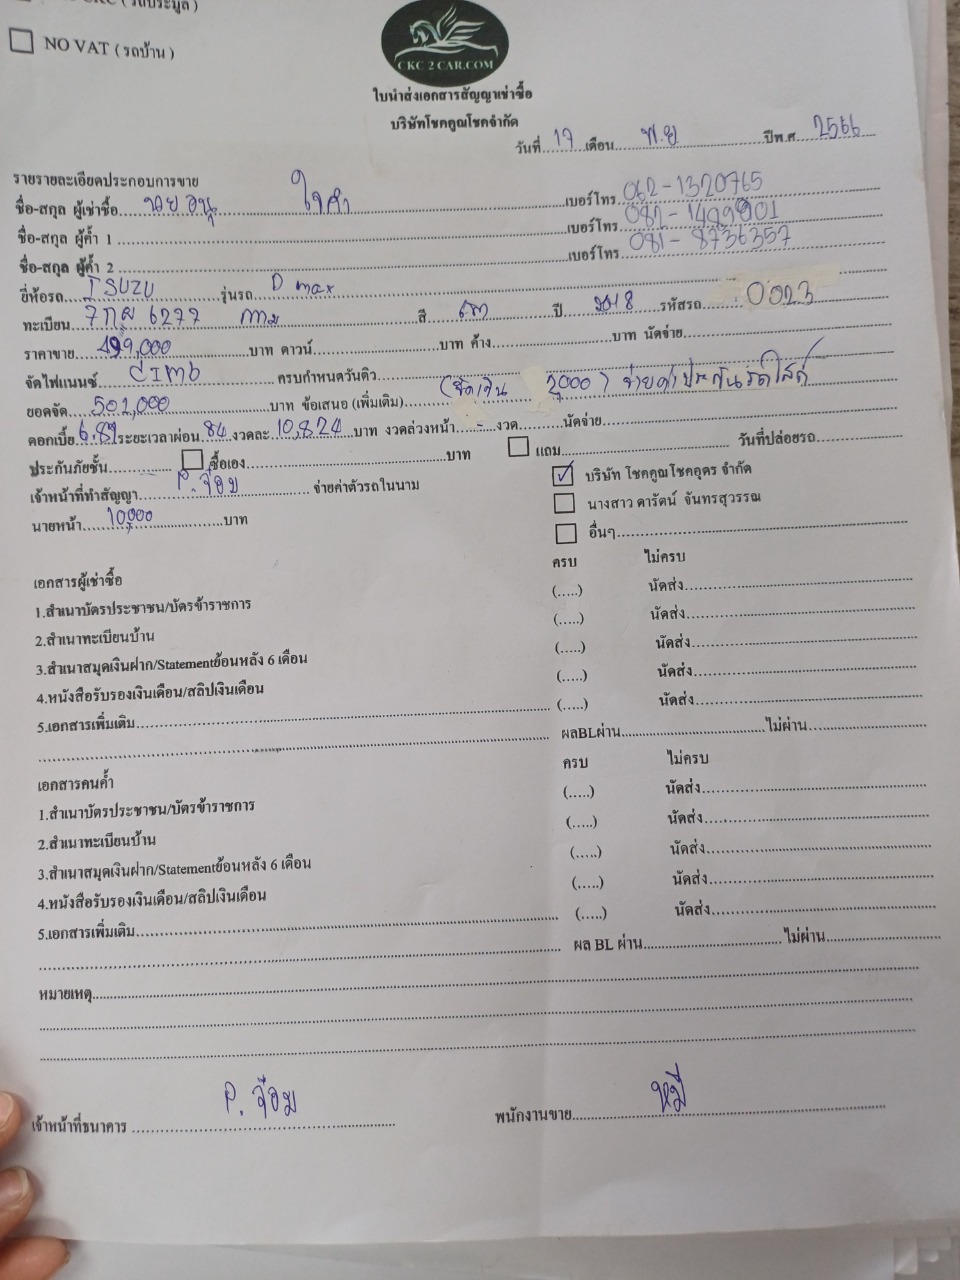 CKC ( รถประมูล )
NO VAT ( รถบ้าน )
CKC 2 CAR.COM
ใบนำส่งเอกสารสัญญาเช่าซื้อ
บริษัทโชคคูณโชคจำกัด
วันที่ 17 เดือน พ.ย ปีพ.ศ 2566
รายรายละเอียดประกอบการขาย
ชื่อ-สกุล ผู้เช่าซื้อ นาย อนุ ใจคำ เบอร์โทร 062-1320765
ชื่อ-สกุล ผู้ค้ำ 1 เบอร์โทร
ชื่อ-สกุล ผู้ค้ำ 2 เบอร์โทร 081-8736357
ยี่ห้อรถ ISUZU รุ่นรถ D max
ทะเบียน 6277 กทม สี ปี 2018 รหัสรถ 0023
ราคาขาย 499,000 บาท ดาวน์ บาท ค้าง บาท นัดจ่าย
จัดไฟแนนซ์ CIMB ครบกำหนดวันคิว
ยอดจัด 501,000 บาท ข้อเสนอ (เพิ่มเติม) 2,000) จ่ายค่าประกันรถใส่ตู้
ดอกเบี้ย 6.89 ระยะเวลาผ่อน 84 งวดละ 10,824 บาท งวดล่วงหน้า - งวด นัดจ่าย
ประกันภัยชั้น ซื้อเอง บาท แถม วันที่ปล่อยรถ
เจ้าหน้าที่ทำสัญญา P. จ๋อม จ่ายค่าตัวรถในนาม บริษัท โชคคูณโชคอุดร จำกัด
นางสาว ดารัตน์ จันทรสุวรรณ
นายหน้า 10,000 บาท อื่นๆ
เอกสารผู้เช่าซื้อ ครบ ไม่ครบ
1.สำเนาบัตรประชาชน/บัตรข้าราชการ (.....) นัดส่ง
2.สำเนาทะเบียนบ้าน (.....) นัดส่ง
3.สำเนาสมุดเงินฝาก/Statementย้อนหลัง 6 เดือน (.....) นัดส่ง
4.หนังสือรับรองเงินเดือน/สลิปเงินเดือน (.....) นัดส่ง
5.เอกสารเพิ่มเติม (.....) นัดส่ง
ผลBLผ่าน ไม่ผ่าน
เอกสารคนค้ำ ครบ ไม่ครบ
1.สำเนาบัตรประชาชน/บัตรข้าราชการ (.....) นัดส่ง
2.สำเนาทะเบียนบ้าน (.....) นัดส่ง
3.สำเนาสมุดเงินฝาก/Statementย้อนหลัง 6 เดือน (.....) นัดส่ง
4.หนังสือรับรองเงินเดือน/สลิปเงินเดือน (.....) นัดส่ง
5.เอกสารเพิ่มเติม (.....) นัดส่ง
ผล BL ผ่าน ไม่ผ่าน
หมายเหตุ
เจ้าหน้าที่ธนาคาร P. จ๋อม พนักงานขาย หมี